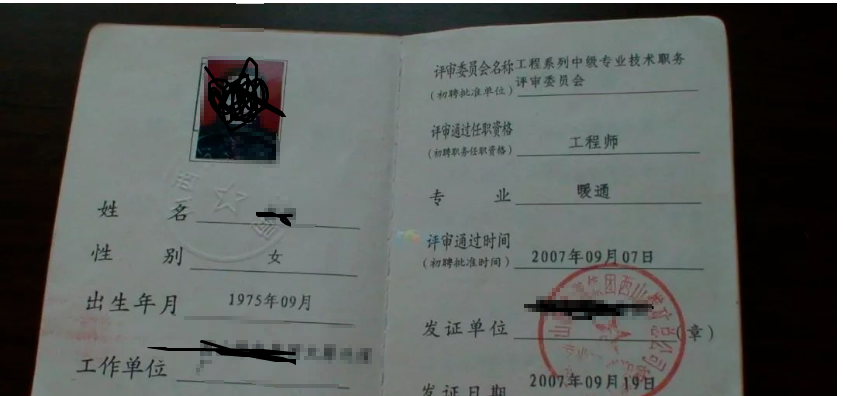 姓 名
性 别 女
出生年月 1975年09月
工作单位
评审委员会名称 工程系列中级专业技术职务
(初聘批准单位) 评审委员会
评审通过任职资格
(初聘职务任职资格) 工程师
专 业 暖通
评审通过时间
(初聘批准时间) 2007年09月07日
发证单位 (章)
发证日期 2007年09月19日